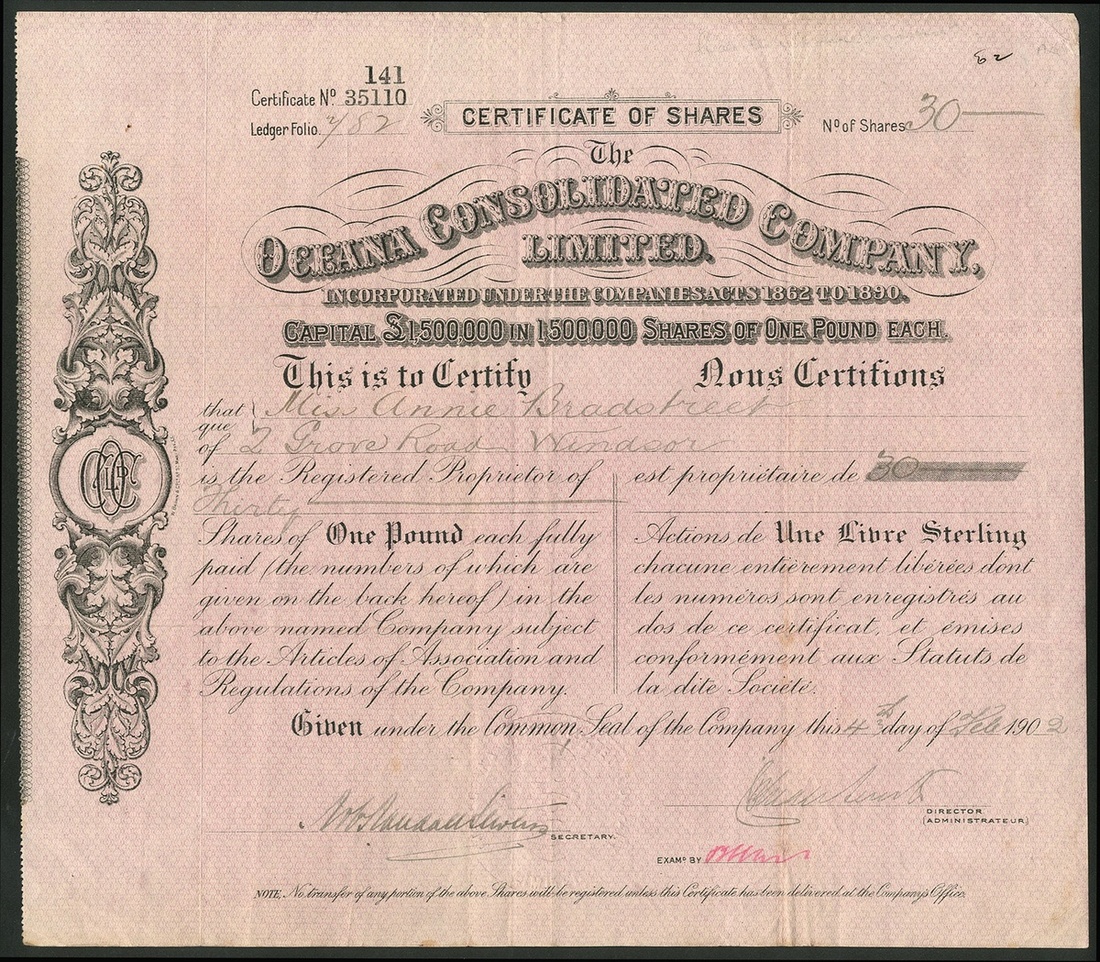 62
141
Certificate No 35110
CERTIFICATE OF SHARES
No of Shares 30
Ledger Folio. 782
The
OCEANA CONSOLIDATED COMPANY,
LIMITED.
INCORPORATED UNDER THE COMPANIES ACTS 1862 TO 1890.
CAPITAL £1,500,000 IN 1,500,000 SHARES OF ONE POUND EACH.
This is to Certify Nous Certifions
that Miss Annie Bradstreet
que
of 2 Grove Road Windsor
is the Registered Proprietor of
Thirty
Shares of One Pound each fully
paid (the numbers of which are
given on the back hereof) in the
above named Company subject
to the Articles of Association and
Regulations of the Company.
est propriétaire de 30
Actions de Une Livre Sterling
chacune entièrement libérées dont
les numéros sont enregistrés au
dos de ce certificat, et émises
conformément aux Statuts de
la dite Société.
Given under the Common Seal of the Company this 4th day of Feb 1902
SECRETARY.
DIRECTOR
(ADMINISTRATEUR)
EXAMD BY
NOTE, No transfer of any portion of the above Shares will be registered unless this Certificate has been delivered at the Company's Office.